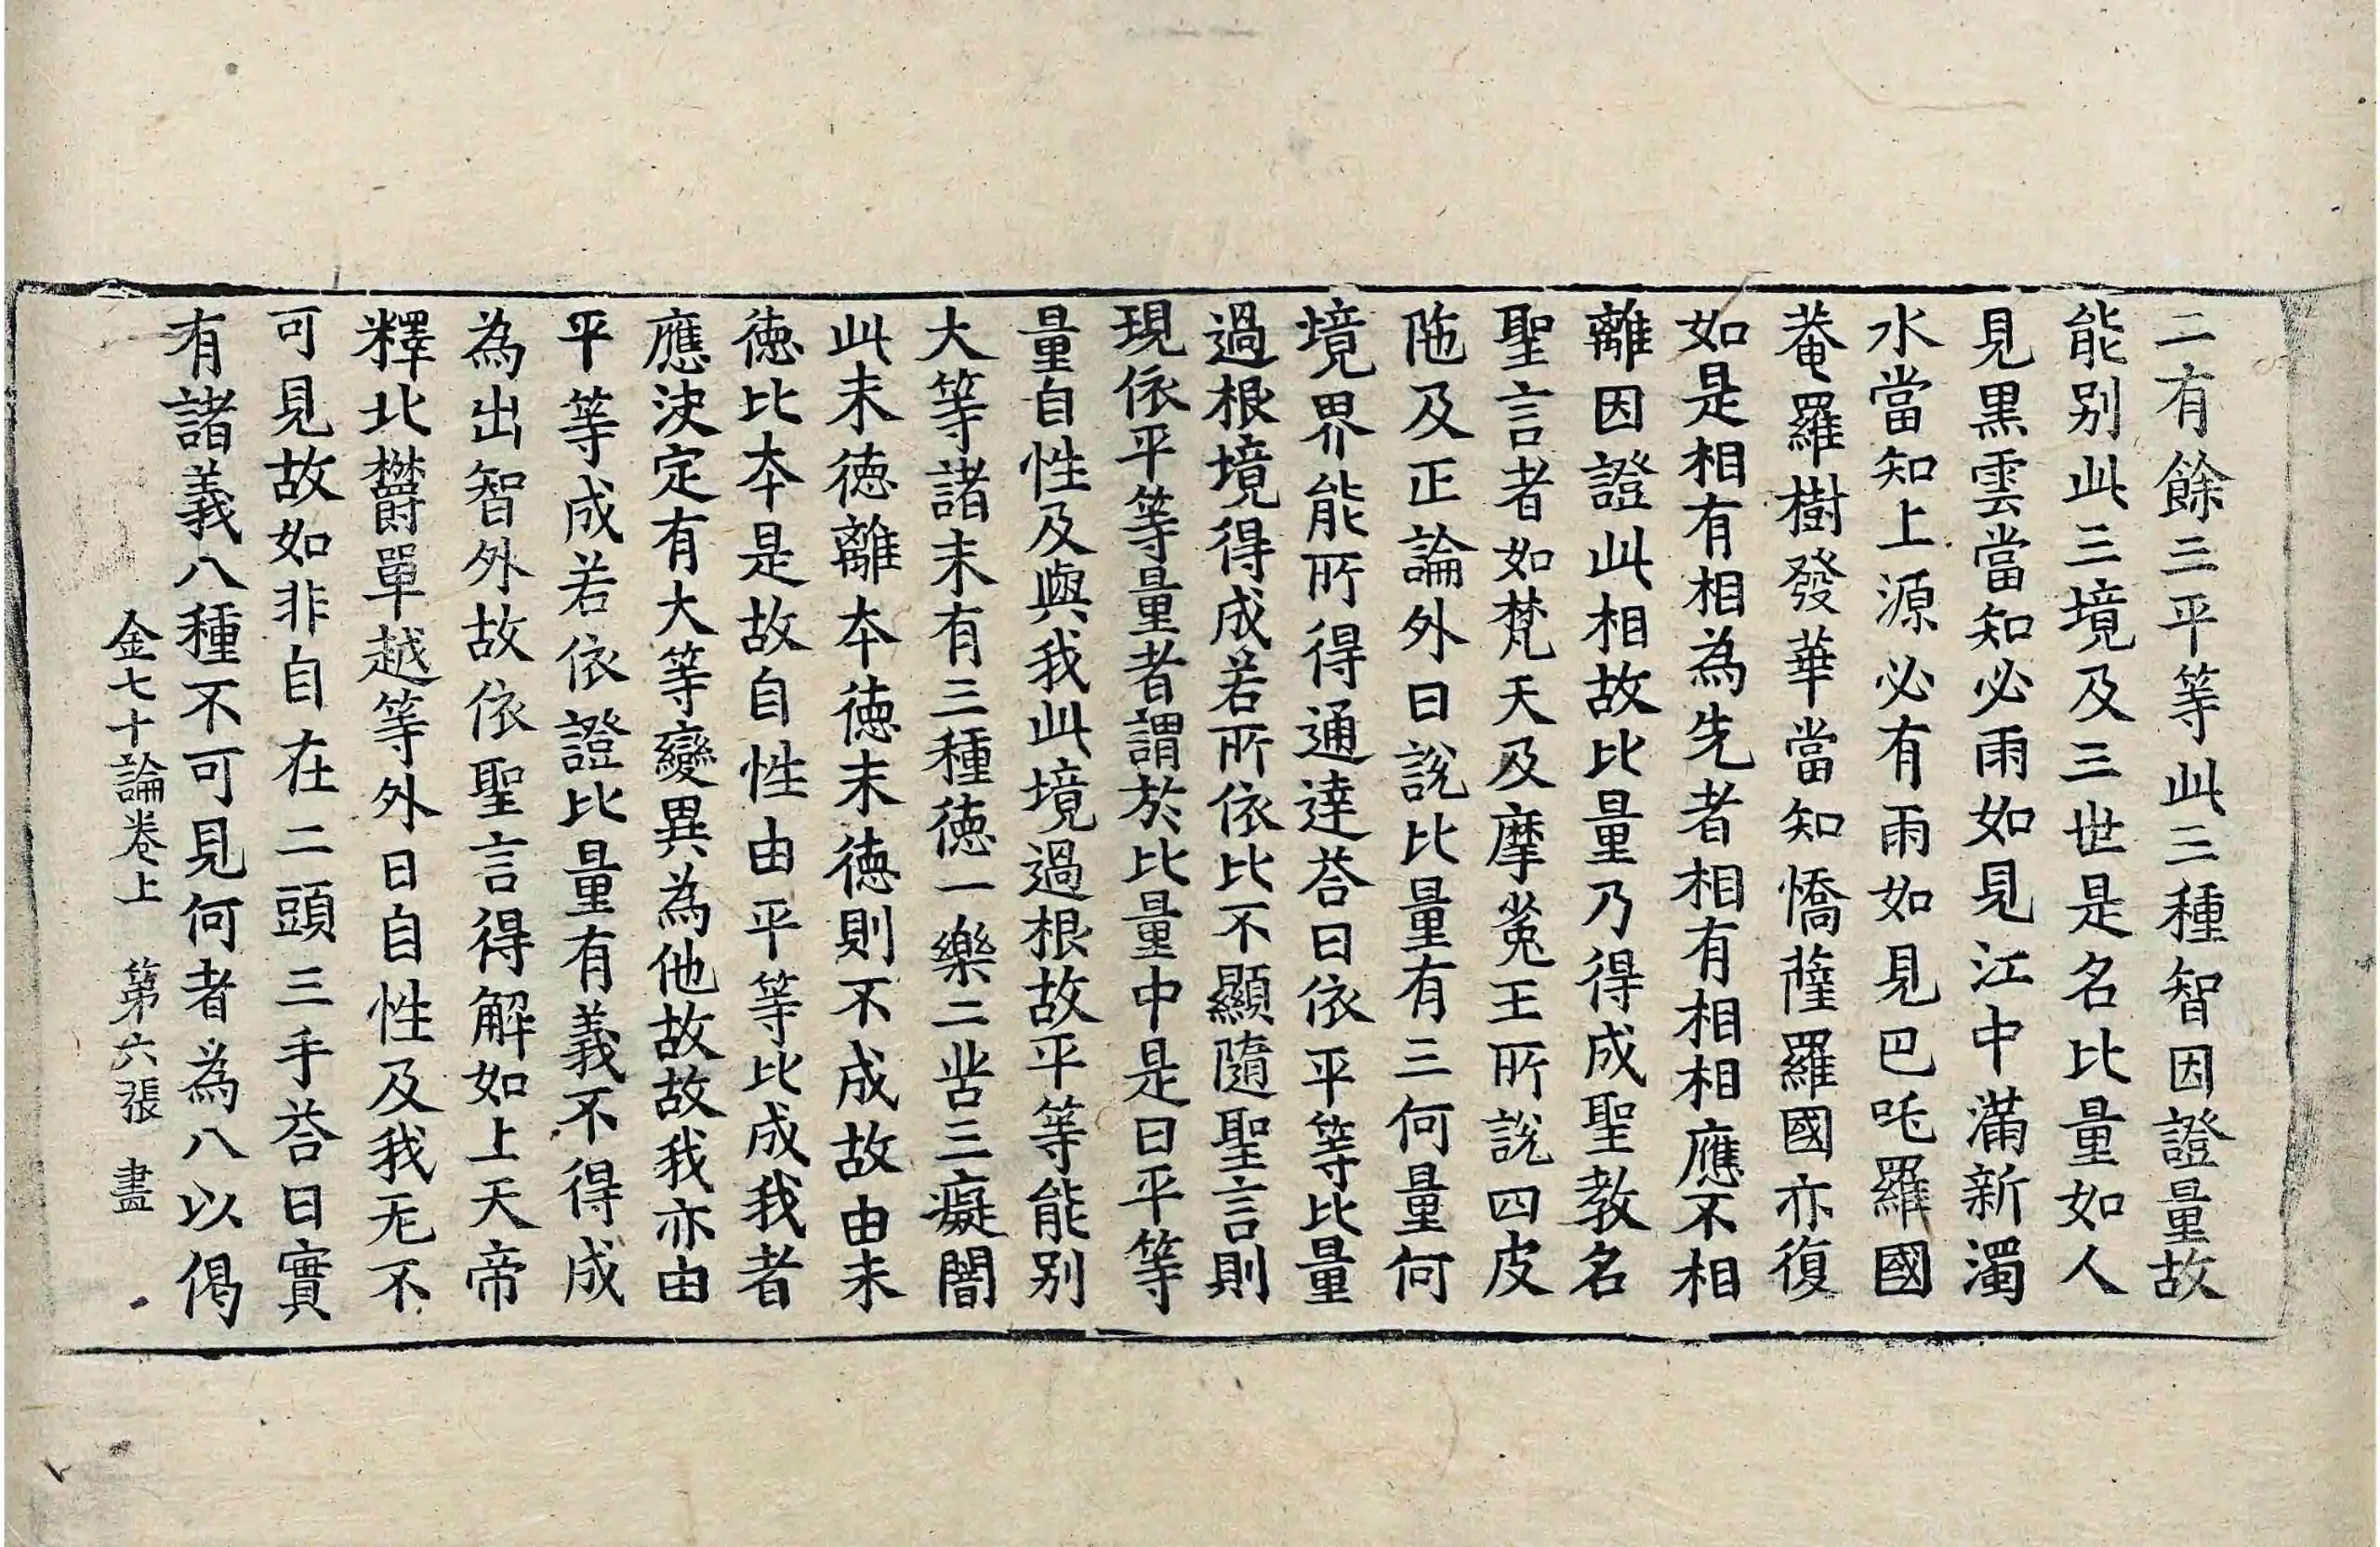 二有餘三平等此三種智因證量故
能別此三境及三世是名比量如人
見黒雲當知必雨如見江中滿新濁
水當知上源必有雨如見巴吒羅國
菴羅樹發華當知憍薩羅國亦復
如是相有相為先者相有相相應不相
離因證此相故比量乃得成聖教名
聖言者如梵天及摩㝹王所說四皮
陁及正論外曰說比量有三何量何
境界能所得通達荅曰依平等比量
過根境得成若所依比不顯隨聖言則
現依平等量者謂於比量中是曰平等
量自性及與我此境過根故平等能別
大等諸末有三種徳一樂二苦三癡闇
此末徳離本徳末徳則不成故由末
徳比本是故自性由平等比成我者
應決定有大等變異為他故故我亦由
平等成若依證比量有義不得成
為出智外故依聖言得解如上天帝
釋北欝單越等外曰自性及我无不
可見故如非自在二頭三手荅曰實
有諸義八種不可見何者為八以偈
金七十論卷上　第六張　盡